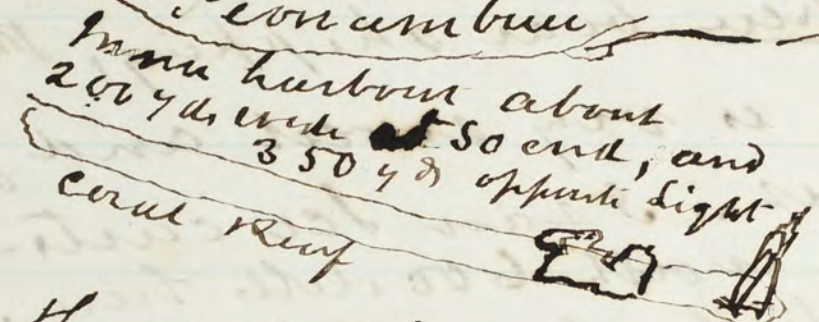 Pernambuco
Inner harbour about
200 yds wide at So end, and
350 yds opposite Light
Coral Reef